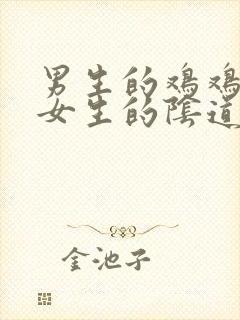 男生的鸡鸡
女生的陰道
金池子